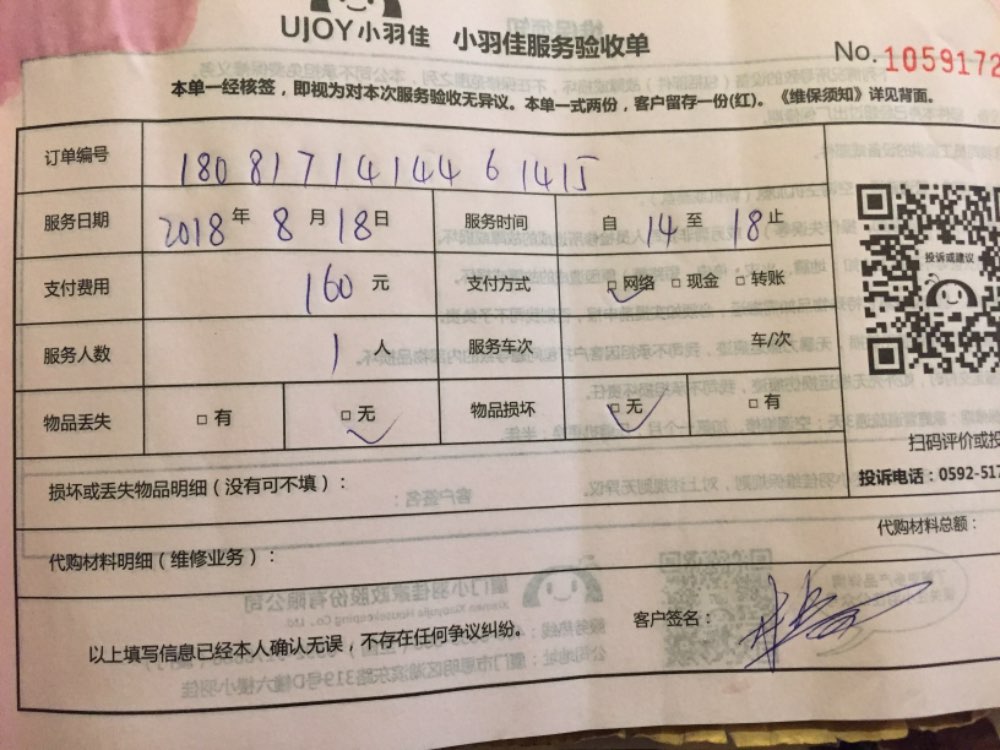 UJOY小羽佳 小羽佳服务验收单
No.1059172
本单一经核签，即视为对本次服务验收无异议。本单一式两份，客户留存一份(红)。《维保须知》详见背面。
订单编号 1808171414461415
服务日期 2018年8月18日 服务时间 自14至18止
支付费用 160元 支付方式 □网络 □现金 □转账
服务人数 1人 服务车次 车/次
物品丢失 □有 □无 物品损坏 □无 □有
投诉或建议
扫码评价或投
投诉电话：0592-517
损坏或丢失物品明细（没有可不填）：
代购材料总额：
代购材料明细（维修业务）：
客户签名：
以上填写信息已经本人确认无误，不存在任何争议纠纷。